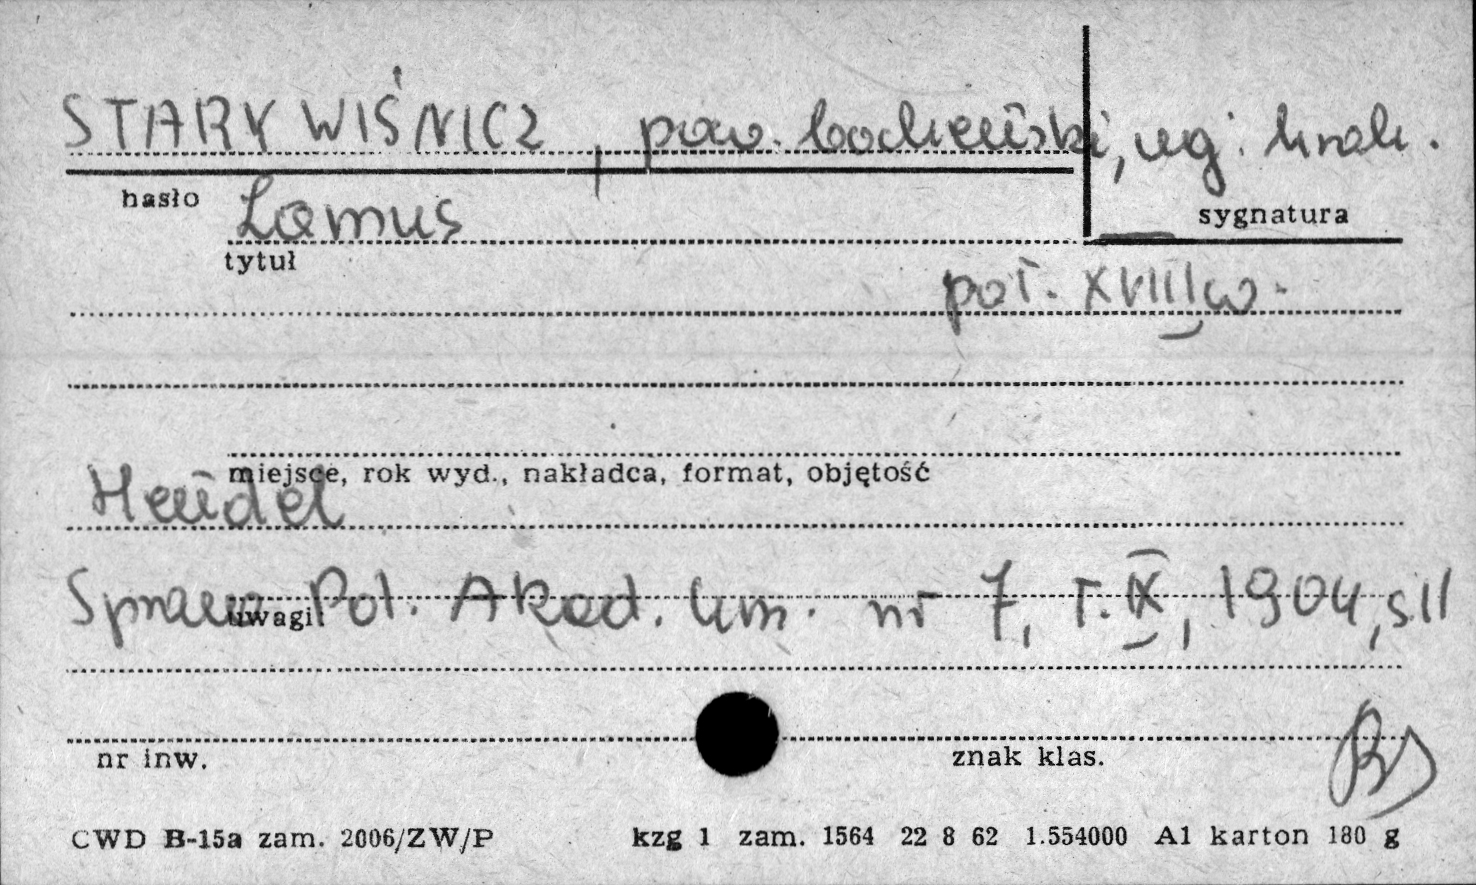 STARY WIŚNICZ, pow. bocheński, reg. krak.
hasło
Lamus
sygnatura
tytuł
poł. XVIII w.
miejsce, rok wyd., nakładca, format, objętość
Hendel
Spraw. Pol. Akad. Um. nr 7, T. IX, 1904, s. 11
uwagi:
nr inw.
znak klas.
CWD B-15a zam. 2006/ZW/P kzg 1 zam. 1564 22 8 62 1.554000 A1 karton 180 g